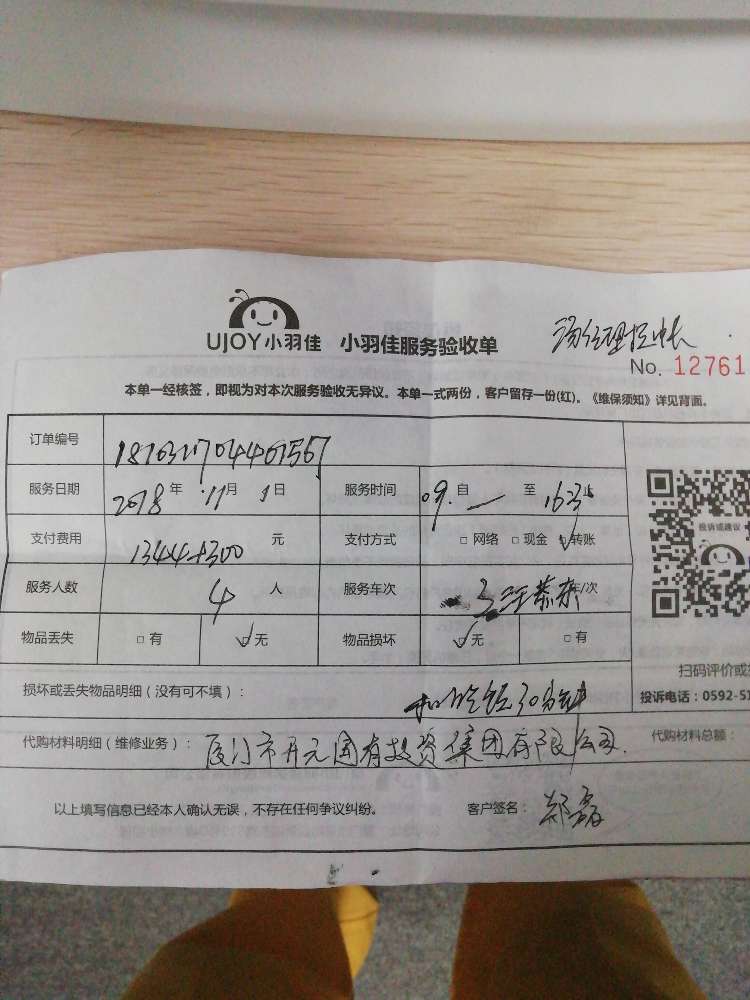 UJOY小羽佳 小羽佳服务验收单
No. 12761
本单一经核签，即视为对本次服务验收无异议。本单一式两份，客户留存一份(红)。《维保须知》详见背面。
订单编号
服务日期 2018年 11月 1日 服务时间 09.自 至 止
支付费用 1344+300 元 支付方式 □ 网络 □ 现金 □ 转账
服务人数 4 人 服务车次 3 车/次
物品丢失 □ 有 □ 无 物品损坏 □ 无 □ 有
投诉或建议
扫码评价或
损坏或丢失物品明细（没有可不填）： 30分钟
投诉电话：0592-51
代购材料明细（维修业务）： 厦门市开元国有投资集团有限公司. 代购材料总额：
以上填写信息已经本人确认无误，不存在任何争议纠纷。 客户签名： 郑磊